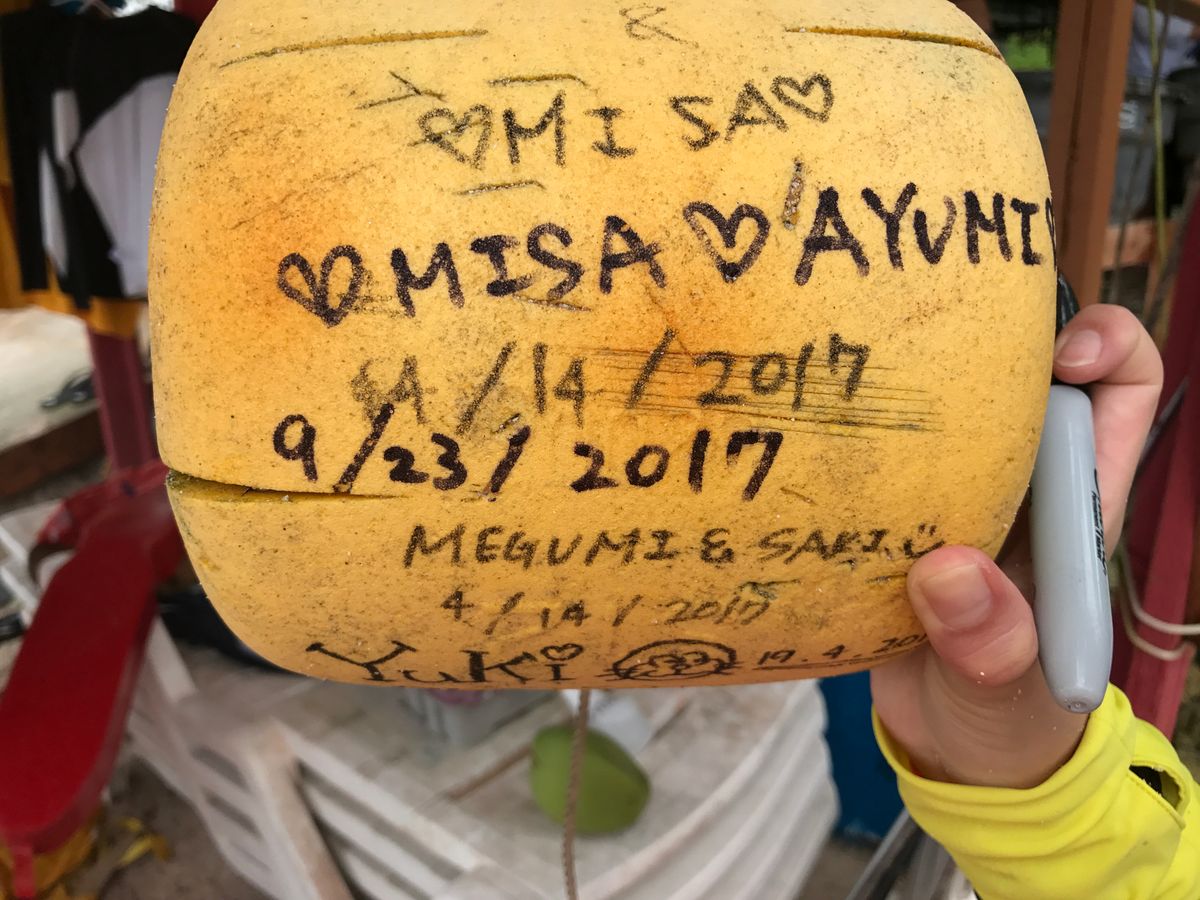 ♡MISA♡
♡MISA♡AYUMI♡
4/14/2017
9/23/2017
MEGUMI & SAKI
4/14/2017
YuKi♡ 19.4.